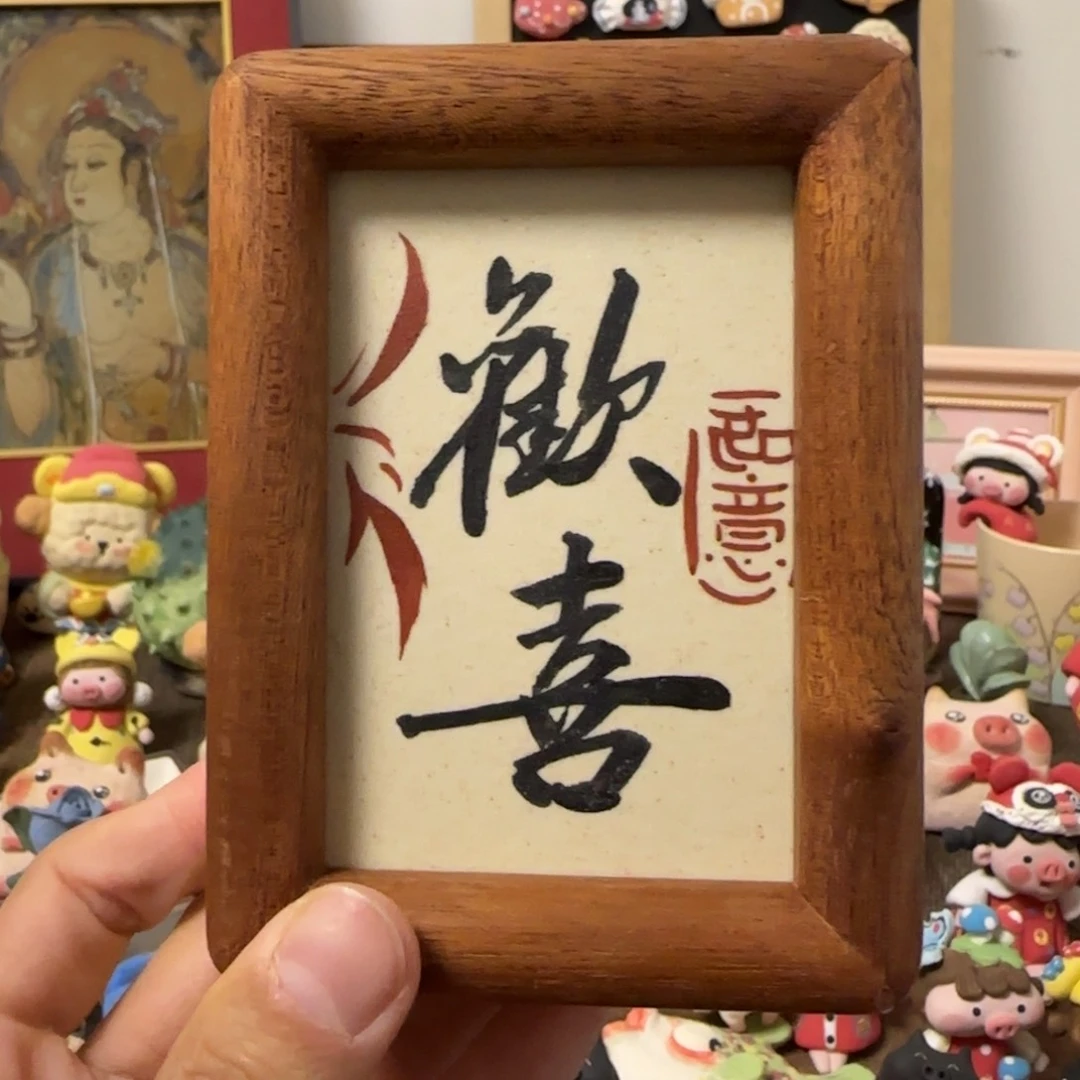 歡喜
如意